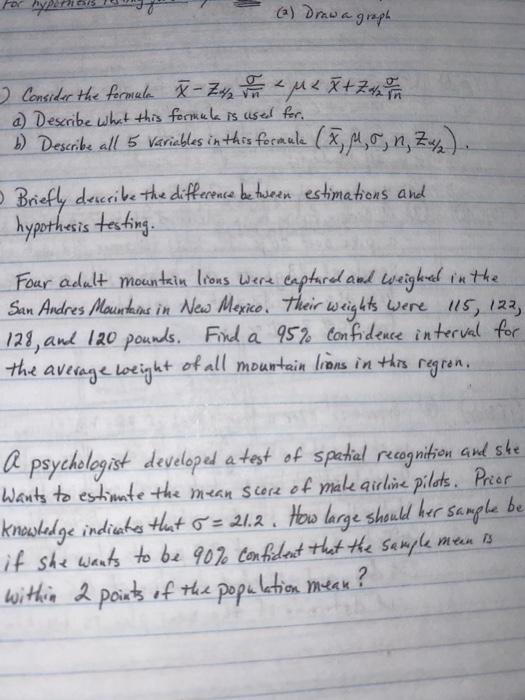 For hypothesis testing
(2) Draw a graph
) Consider the formula x̄ - Zα/2 σ/√n < μ < x̄ + Zα/2 σ/√n
a) Describe what this formula is used for.
b) Describe all 5 variables in this formula (x̄, μ, σ, n, Zα/2).
) Briefly describe the difference between estimations and
hypothesis testing.
Four adult mountain lions were captured and weighed in the
San Andres Mountains in New Mexico. Their weights were 115, 122,
128, and 120 pounds. Find a 95% confidence interval for
the average weight of all mountain lions in this region.
A psychologist developed a test of spatial recognition and she
wants to estimate the mean score of male airline pilots. Prior
knowledge indicates that σ = 21.2. How large should her sample be
if she wants to be 90% confident that the sample mean is
within 2 points of the population mean?